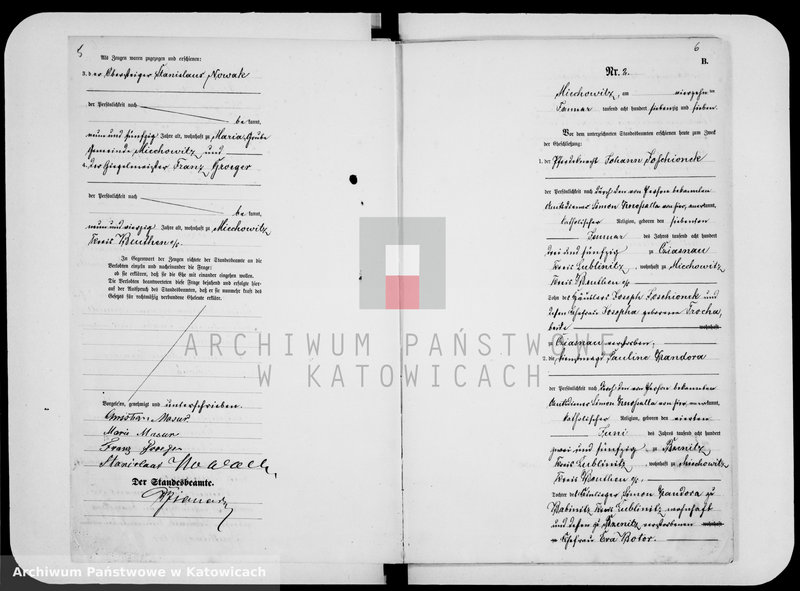 5
Als Zeugen waren zugezogen und erschienen:
3. der Obersteiger Stanislaus Nowak
der Persönlichkeit nach
be kannt,
neun und fünfzig Jahre alt, wohnhaft zu Maria Grube
Gemeinde Miechowitz und
4. der Ziegelmeister Franz Groeger
der Persönlichkeit nach
be kannt,
neun und vierzig Jahre alt, wohnhaft zu Miechowitz
Kreis Beuthen o/s.
In Gegenwart der Zeugen richtete der Standesbeamte an die
Verlobten einzeln und nacheinander die Frage:
ob sie erklären, daß sie die Ehe mit einander eingehen wollen.
Die Verlobten beantworteten diese Frage bejahend und erfolgte hier-
auf der Ausspruch des Standesbeamten, daß er sie nunmehr kraft des
Gesetzes für rechtmäßig verbundene Eheleute erkläre.
Vorgelesen, genehmigt und unterschrieben.
Mazur
Marie Mazur
Franz Groeger
Stanislaus Nowack.
Der Standesbeamte.
6
B.
Nr. 2.
Miechowitz, am vierzehn ten
Januar tausend acht hundert siebenzig und sieben.
Vor dem unterzeichneten Standesbeamten erschienen heute zum Zweck
der Eheschließung:
1. der Pferdeknecht Johann Loschionek
der Persönlichkeit nach durch den von Person bekannten
Amtsdiener Simon von hier, anerkannt,
katholischer Religion, geboren den siebenten
Januar des Jahres tausend acht hundert
drei und fünfzig zu Cziasnau
Kreis Lublinitz, wohnhaft zu Miechowitz
Kreis Beuthen o/s
Sohn des Häusler Joseph Loschionek und
dessen Ehefrau Josepha geborene Trocha,
beide wohnhaft
zu Cziasnau verstorben.
2. die Dienstmagd Pauline Kandora
der Persönlichkeit nach durch den von Person bekannten
Amtsdiener Simon von hier, anerkannt,
katholischer Religion, geboren den vierten
Juni des Jahres tausend acht hundert
zwei und fünfzig zu
Kreis Lublinitz, wohnhaft zu Miechowitz
Kreis Beuthen o/s.
Tochter des Simon Kandora zu
Babinitz Kreis Lublinitz wohnhaft
und dessen zu verstorbenen wohnhaft
Ehefrau Eva Botor.
ARCHIWUM PAŃSTWOWE
W KATOWICACH
Archiwum Państwowe w Katowicach